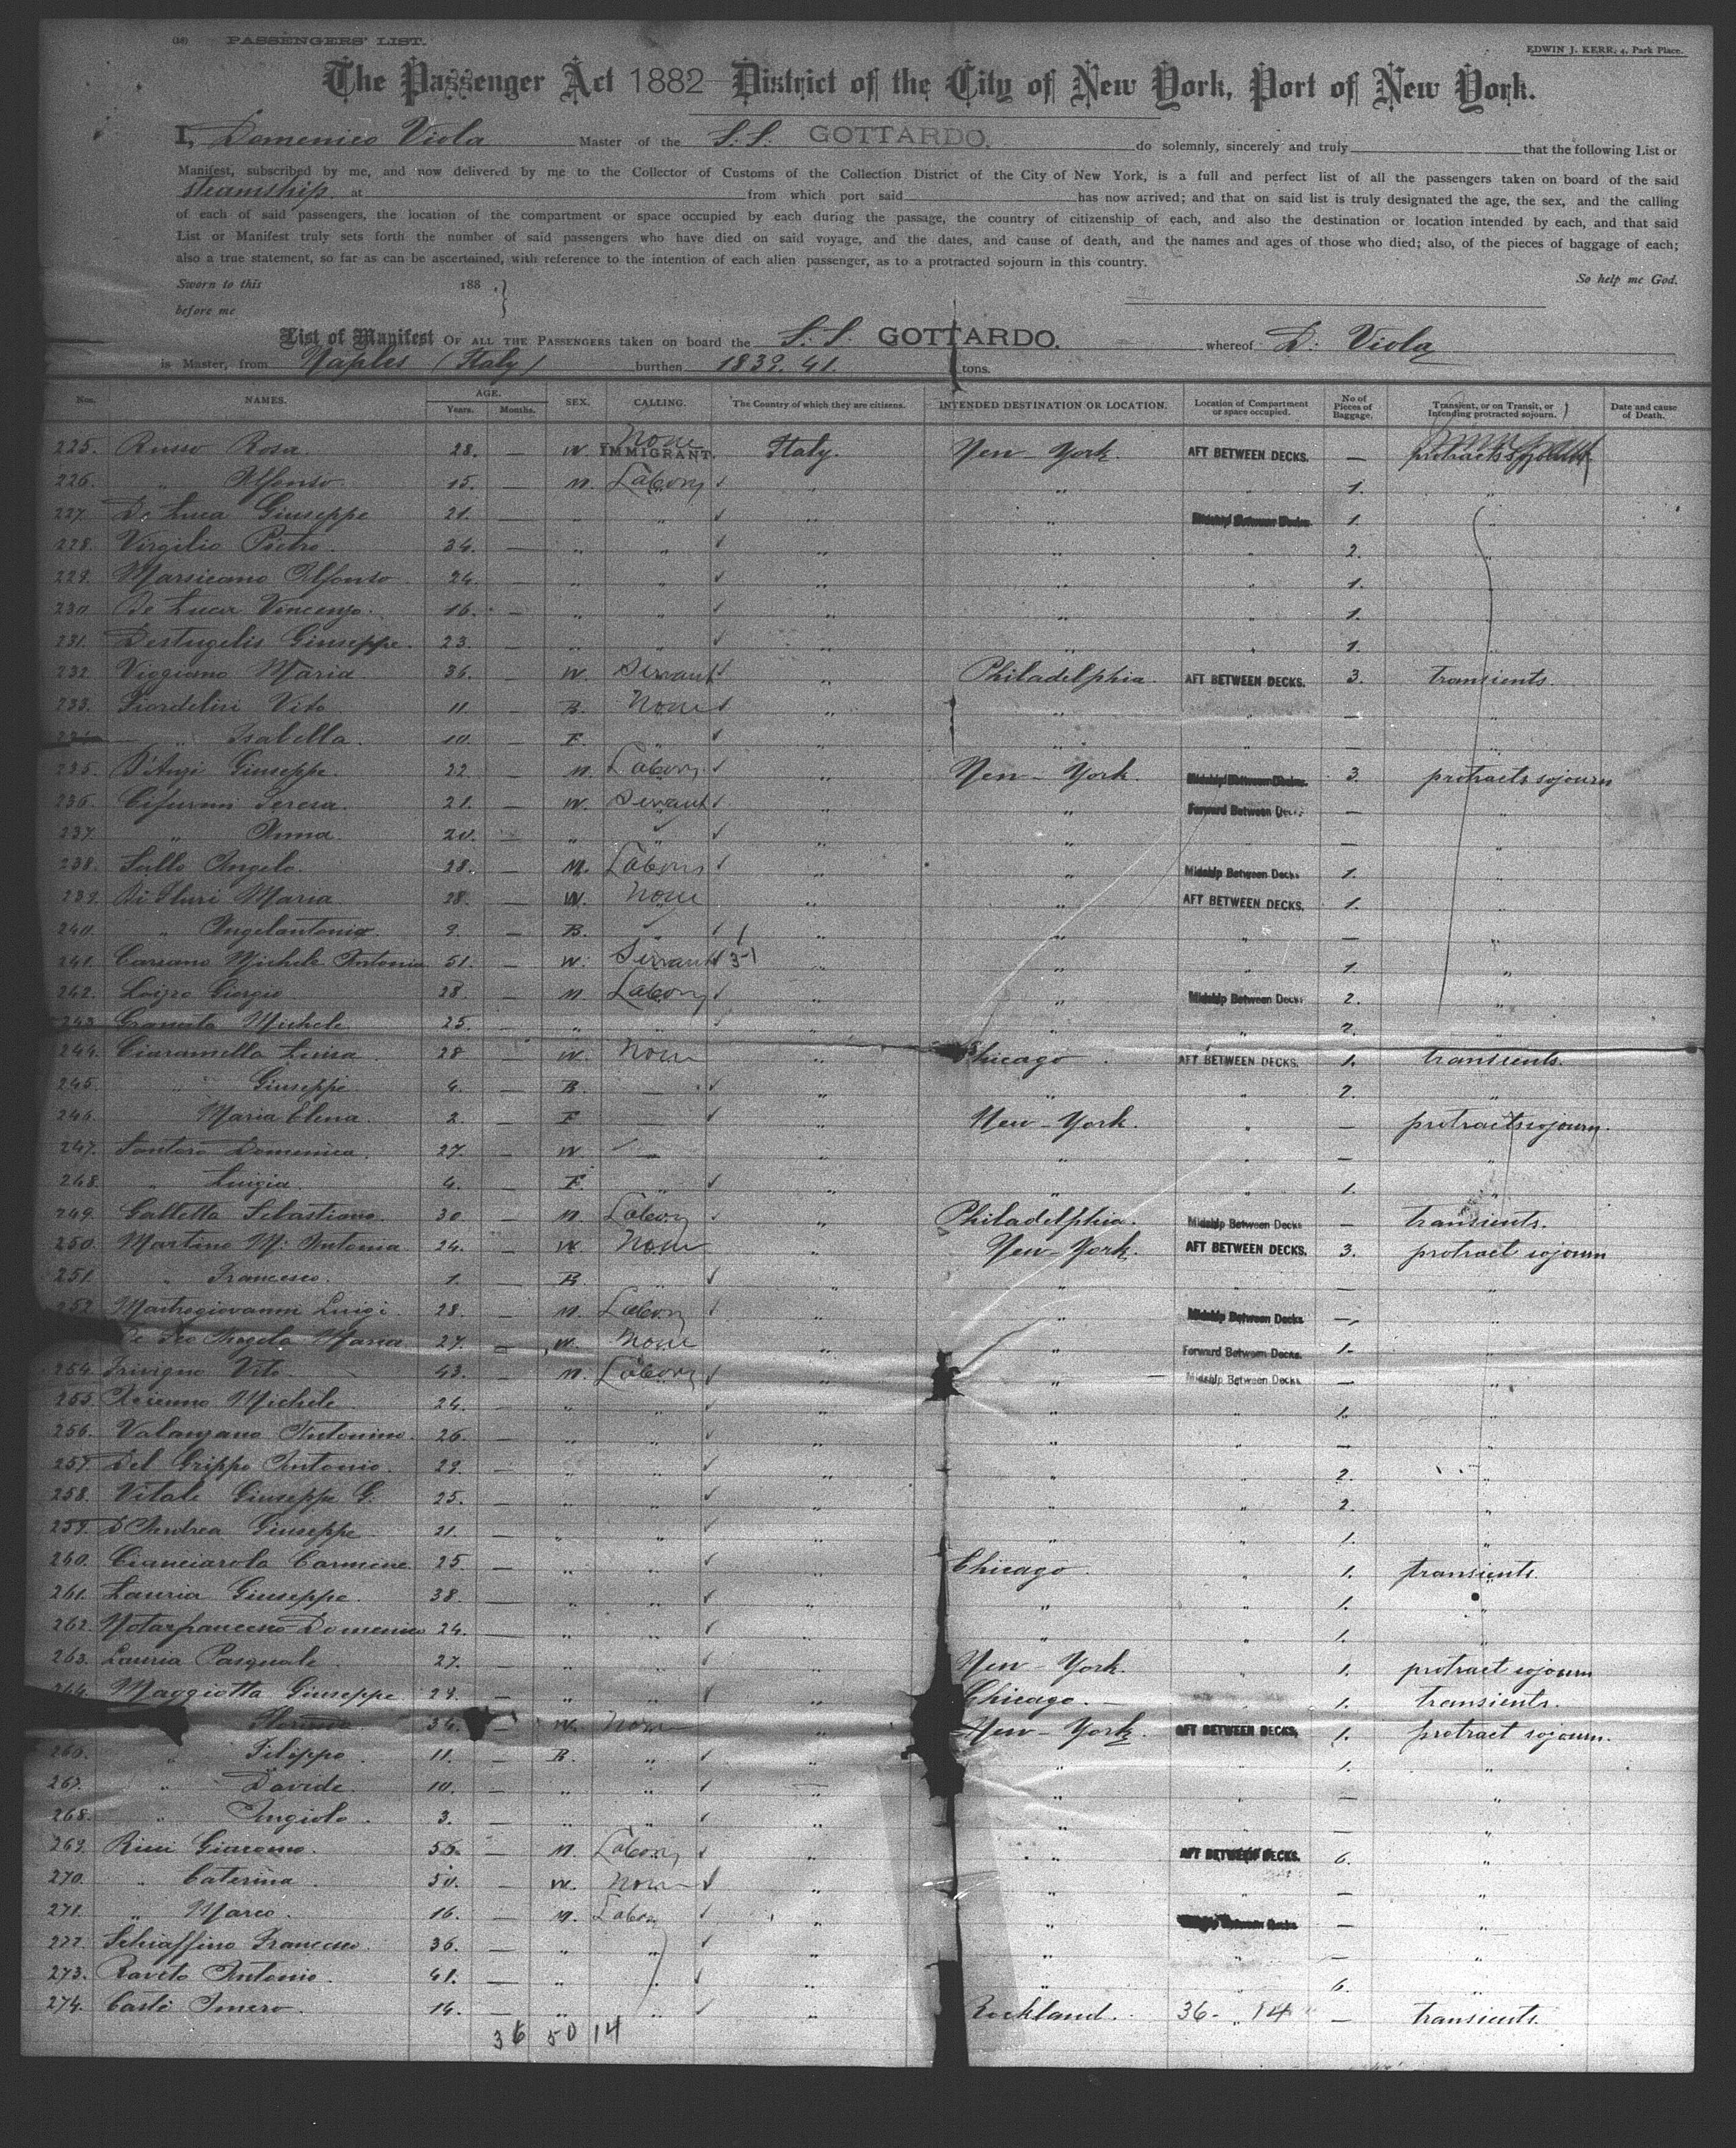 PASSENGERS' LIST.
EDWIN J. KERR, 4, Park Place.
The Passenger Act 1882 District of the City of New York, Port of New York.
I, Domenico Viola Master of the S.S. GOTTARDO. do solemnly, sincerely and truly that the following List or
Manifest, subscribed by me, and now delivered by me to the Collector of Customs of the Collection District of the City of New York, is a full and perfect list of all the passengers taken on board of the said
steamship at from which port said has now arrived; and that on said list is truly designated the age, the sex, and the calling
of each of said passengers, the location of the compartment or space occupied by each during the passage, the country of citizenship of each, and also the destination or location intended by each, and that said
List or Manifest truly sets forth the number of said passengers who have died on said voyage, and the dates, and cause of death, and the names and ages of those who died; also, of the pieces of baggage of each;
also a true statement, so far as can be ascertained, with reference to the intention of each alien passenger, as to a protracted sojourn in this country.
Sworn to this 188 So help me God.
before me
List of Manifest OF ALL THE PASSENGERS taken on board the S.S. GOTTARDO. whereof D. Viola
is Master, from Naples (Italy) burthen 1839. 41. tons.
Nos. NAMES. AGE. Years. Months. SEX. CALLING. The Country of which they are citizens. INTENDED DESTINATION OR LOCATION. Location of Compartment or space occupied. No of Pieces of Baggage. Transient, or on Transit, or Intending protracted sojourn. Date and cause of Death.
225. Russo Rosa. 28. — W. None IMMIGRANT. Italy. New-York. AFT BETWEEN DECKS. —
226. " Alfonso. 15. — M. Labory " " " 1. "
227. De Luca Giuseppe 21. — " " " " Midship Between Decks. 1. "
228. Virgilio Pietro. 34. — " " " " " 2. "
229. Marsicano Alfonso. 24. — " " " " " 1.
230. De Luca Vincenzo. 16. — " " " " " 1.
231. Giuseppe. 23. — " " " " " 1.
232. Viggiano Maria 36. — W. Servant " Philadelphia. AFT BETWEEN DECKS. 3. transients.
233. Vito 11. — B. None " " " — "
234. " Isabella. 10. — F. " " " " — "
235. D'Anzi Giuseppe. 22. — M. Labory " New-York. Midship Between Decks. 3. protracts sojourn
236. Teresa. 21. — W. Servant " " Forward Between Decks — "
237. " Anna. 20. — " " " " " — "
238. Angelo. 28. — M. Labory " " Midship Between Decks 1. "
239. Maria 28. — W. None " " AFT BETWEEN DECKS. 1. "
240. " Angelantonia. 9. — B. " " " " — "
241. Michele Antonia 51. — W. Servant 3-1 " " " 1. "
242. Giorgio 28. — M. Labory " " Midship Between Decks 2. "
243. Granata Michele. 25. — " " " " " 2. "
244. Ciaramella Luisa. 28 — W. None " Chicago. AFT BETWEEN DECKS. 1. transients.
245. " Giuseppe 4. — B. — " " " 2. "
246. Maria Elena. 2. — F. — " New-York. " — protracts sojourn.
247. Santoro Domenica. 27. — W. — " " " — "
248. " Luigia. 4. — F. " " " " 1. "
249. Galletta Sebastiano. 30. — M. Labory " Philadelphia. Midship Between Decks — transients.
250. Martino M. Antonia. 24. — W. None " New-York. AFT BETWEEN DECKS. 3. protract sojourn
251. " Francesco. 1. — B. " " " " — "
252. Mastrogiovanni Luigi. 28. — M. Labory " " Midship Between Decks — "
Angela Maria 27. — W. None " " Forward Between Decks. 1. "
254. Trivigno Vito. 43. — M. Labory " " Midship Between Decks — "
255. Michele. 24. — " " " " " 1. "
256. Valanzano Antonino. 26. — " " " " " — "
257. Del Grippo Antonio. 29. — " " " " " 2. "
258. Vitale Giuseppe G. 25. — " " " " " 2. "
259. D'Andrea Giuseppe 21. — " " " " " 1. "
260. Cianciarola Carmine. 25 — " " " Chicago. " 1. transients.
261. Lauria Giuseppe. 38. — " " " " " 1. "
262. Notarfrancesco Domenico 24. — " " " " " 1.
263. Lauria Pasquale. 27. — " " " New-York. " 1. protract sojourn
264. Maggiotta Giuseppe 29. — " " " Chicago. — 1. transients.
36. W. None " New-York. AFT BETWEEN DECKS. 1. protract sojourn.
266. " Filippo. 11. — B. " " " " 1. "
267. " Davide. 10. — " " " " " — "
268. " Angiolo. 3. — " " " " " — "
269. Ricci Giacomo. 56. — M. Labory " " AFT BETWEEN DECKS. 6. "
270. " Caterina. 50. — W. None " " " — "
271. " Marco. 16. — M. Labory " " — "
272. Schiaffino Francesco. 36. — " " " " " — "
273. Raveto Antonio. 41. — " " " " " 6. "
274. Caste 14. — " " " Rockland. 36- " 14 — transients.
36 50 14